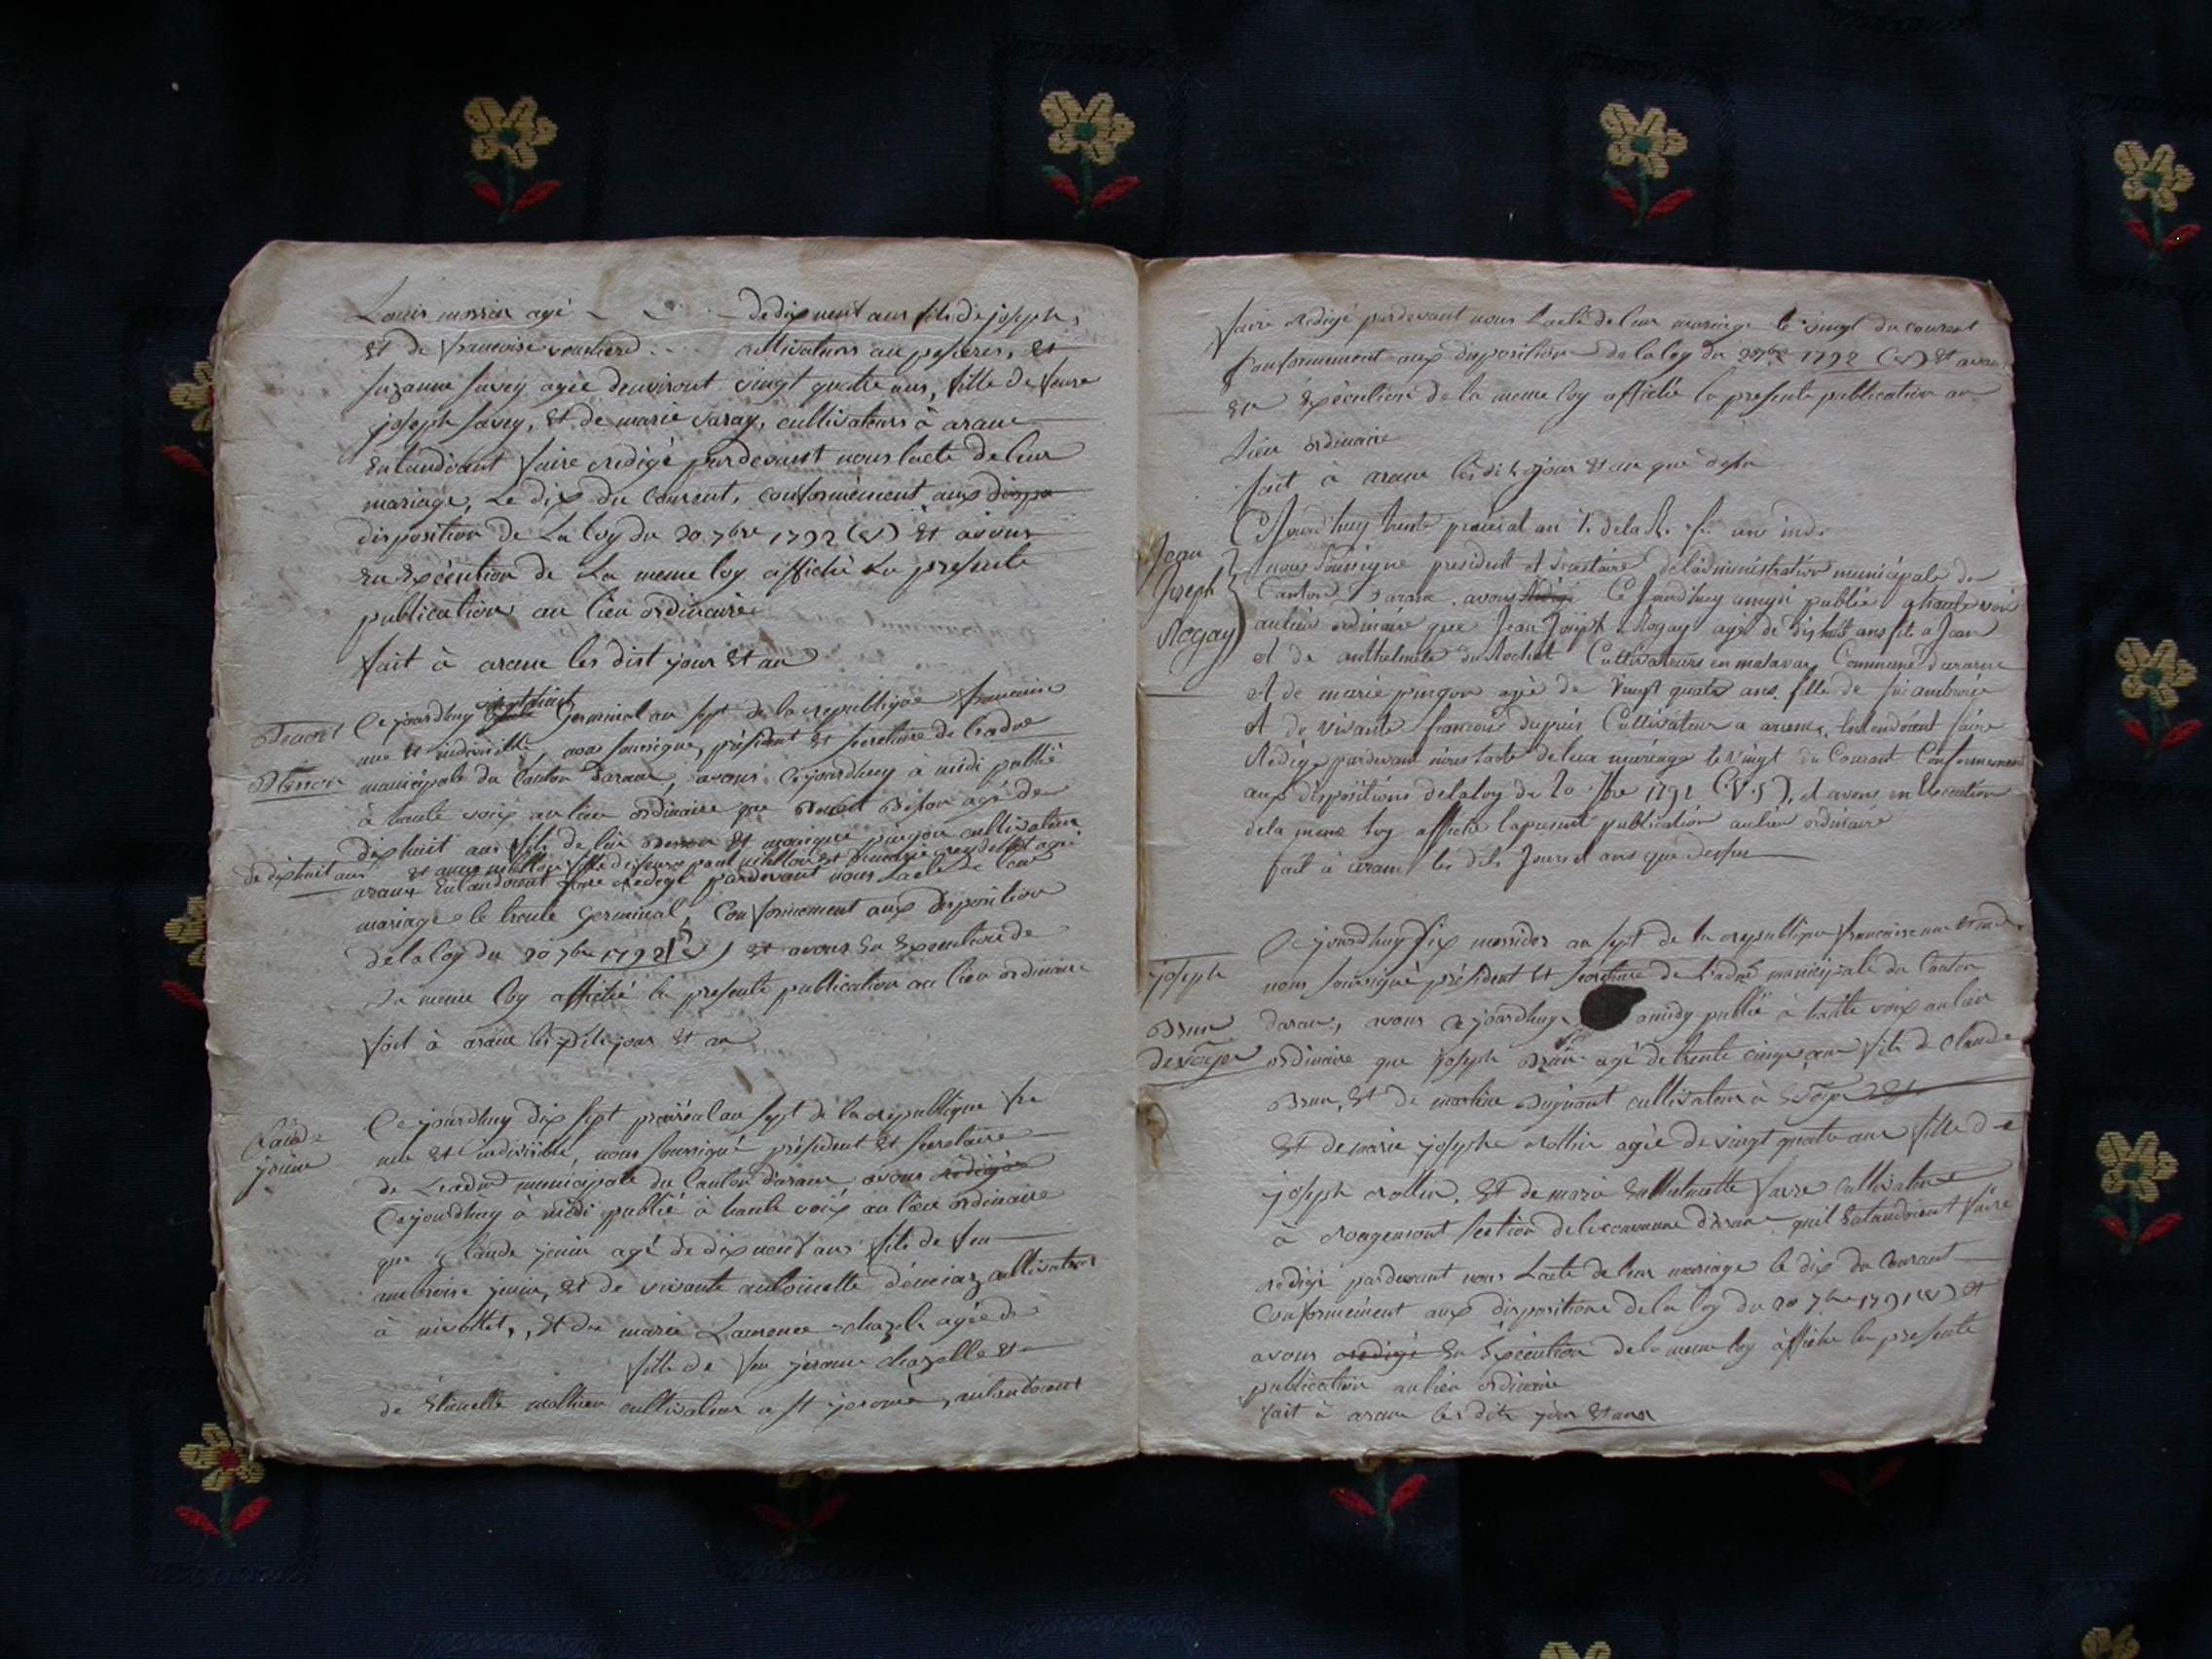 Louis morrin agé - - - de dix neuf ans fils de joseph,
Et de francoise ... cultivateurs au pesieres, Et
suzanne savey agée denviront vingt quatre ans, fille de feue
joseph savey, Et de marie saray, cultivateurs à aranc
Entandoient faire redigé pardevant nous lacte de leur
mariage, Le dix du courent, conformément aux dispo
disposition de La loy du 20 7bre 1792 (vs) Et avons
En Exécution de La meme loy affiché La presente
publication au lieu ordinaire
fait à aranc les dist jour Et an
Benoit
Ce jourdhuy vingt huit Germinal an sept de la republique francaise
une Et indivisible, nous soussigné, président Et secretaire de Ladon
Bisson
municipale du Canton Daranc, avons Cejourdhuy à midi publié
à haute voix au lieu ordinaire que Benoit Bisson agé de
dix huit ans fils de Bisson Et monique pinjon cultivateur
de dix huit ans
Et anne milloz fille de feue paul milloz Et de marie reydellet agé
aranc Entandoient faire redigé pardevant nous Lacte De leur
mariage le trente Germinal, Conformement aux disposition
de la loy du 20 7bre 1792 (vs) Et avons En Execution de
La meme loy affiché la presente publication au lieu ordinaire
fait à aranc les dits jour Et an
Claude
jenin
Ce jourdhuy dix sept prairéal an sept de la republique fre
une Et indivisible, nous soussigné président Et secretaire
de Ladon municipale du Canton daranc avons redigés
Cejourdhuy à midi publié à haute voix au lieu ordinaire
que Claude jenin agé de dix neuf ans fils de feu
ambroise jenin, Et de vivante antoinette démeiaz cultivateur
à nivollet, Et de marie Laurence chazelle agée de
fille de feu jerome chazelle Et
de Etiennette mathieu cultivateur a st jerome, entandoient
faire redigé pardevant nous Lacte de leur mariage le vingt du courent
Conformement aux disposition de la loy du 20 7bre 1792 (vs) Et avons
En Exécution de la meme loy affiché la presente publication au
lieu ordinaire
fait à aranc les dits jour Et an que dessu
Jean
Joseph
Rogay
Ce Jourd'huy trente preiréal an 7. de la R. f. une ind.
nous Soussigné president et secretaire de l'administration municipale du
Canton d'aranc. avons rédigé Ce Jourd'huy amydi publié a haute voix
au lieu ordinaire que Jean Joseph Rogay agé de dix huit ans fils a Jean
et de anthelmette du Rochat Cultivateurs en malaval Commune d'aranc
Et de marie pingon agée de Vingt quatre ans fille de fû ambroise
et de vivante francoise dupuis Cultivateur a aranc, Entendoient faire
Rédigé pardevant nous lacte de leur mariage le Vingt du Courant Conformement
aux dispositions de la loy du 20 7bre 1792 (V.S), et avons en Exécution
de la meme loy affiché la présente publication au lieu ordinaire
fait à aranc les dits Jours et ans que dessus
joseph
Brun
de seige
Ce jourdhuy dix messidor an sept de la republique francaise une Et ind.
nous soussigné président Et Secretaire de Ladmn municipale du Canton
daranc, avons Ce jourdhuy amidy publié à haute voix au lieu
ordinaire que joseph Brun agé de trente cinq ans fils de Claude
Brun, Et de marline Dujnant cultivateur à ...
Et de marie josephe rollin agée de vingt quatre ans fille de
joseph rollin, Et de marie Enthelmette favre Cultivateur
à rougemont section de la commune d'aranc quil Entandoient faire
redigé pardevant nous Lacte de leur mariage le dix du Courant
Conformément aux dispositions de la loy du 20 7bre 1791 (vs) Et
avons redigé En Exécution de la meme loy affiché la presente
publication au lieu ordinaire
fait à aranc les dits jour Et an